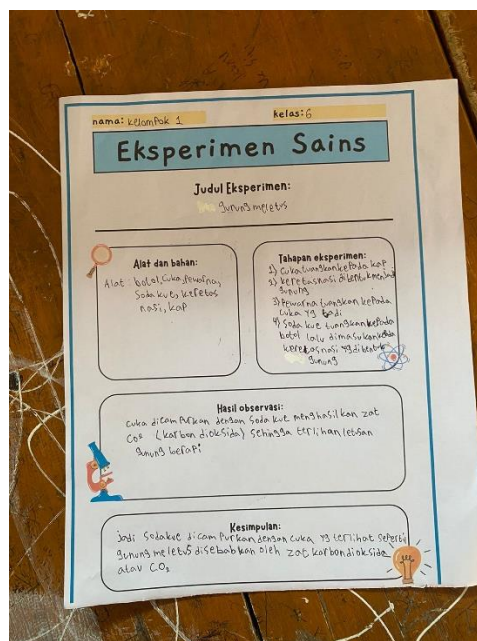 nama: kelompok 1
kelas: 6
Eksperimen Sains
Judul Eksperimen:
gunung meletus
Alat dan bahan:
Alat: botol, cuka, pewarna,
soda kue, keretas
nasi, kap
Tahapan eksperimen:
1) cuka tuangkan kepada kap
2) keretas nasi dibentuk menjadi
gunung
3) Pewarna tuangkan kepada
cuka yg tadi
4) Soda kue tuangkan kepada
botol lalu dimasukan kedalam
keretas nasi yg dibentuk
gunung
Hasil observasi:
cuka dicampurkan dengan soda kue menghasilkan zat
CO₂ (karbon dioksida) sehingga terlihan letusan
gunung berapi
Kesimpulan:
jadi sodakue dicampurkan dengan cuka yg terlihat seperti
gunung meletus disebabkan oleh zat karbondioksida
atau CO₂